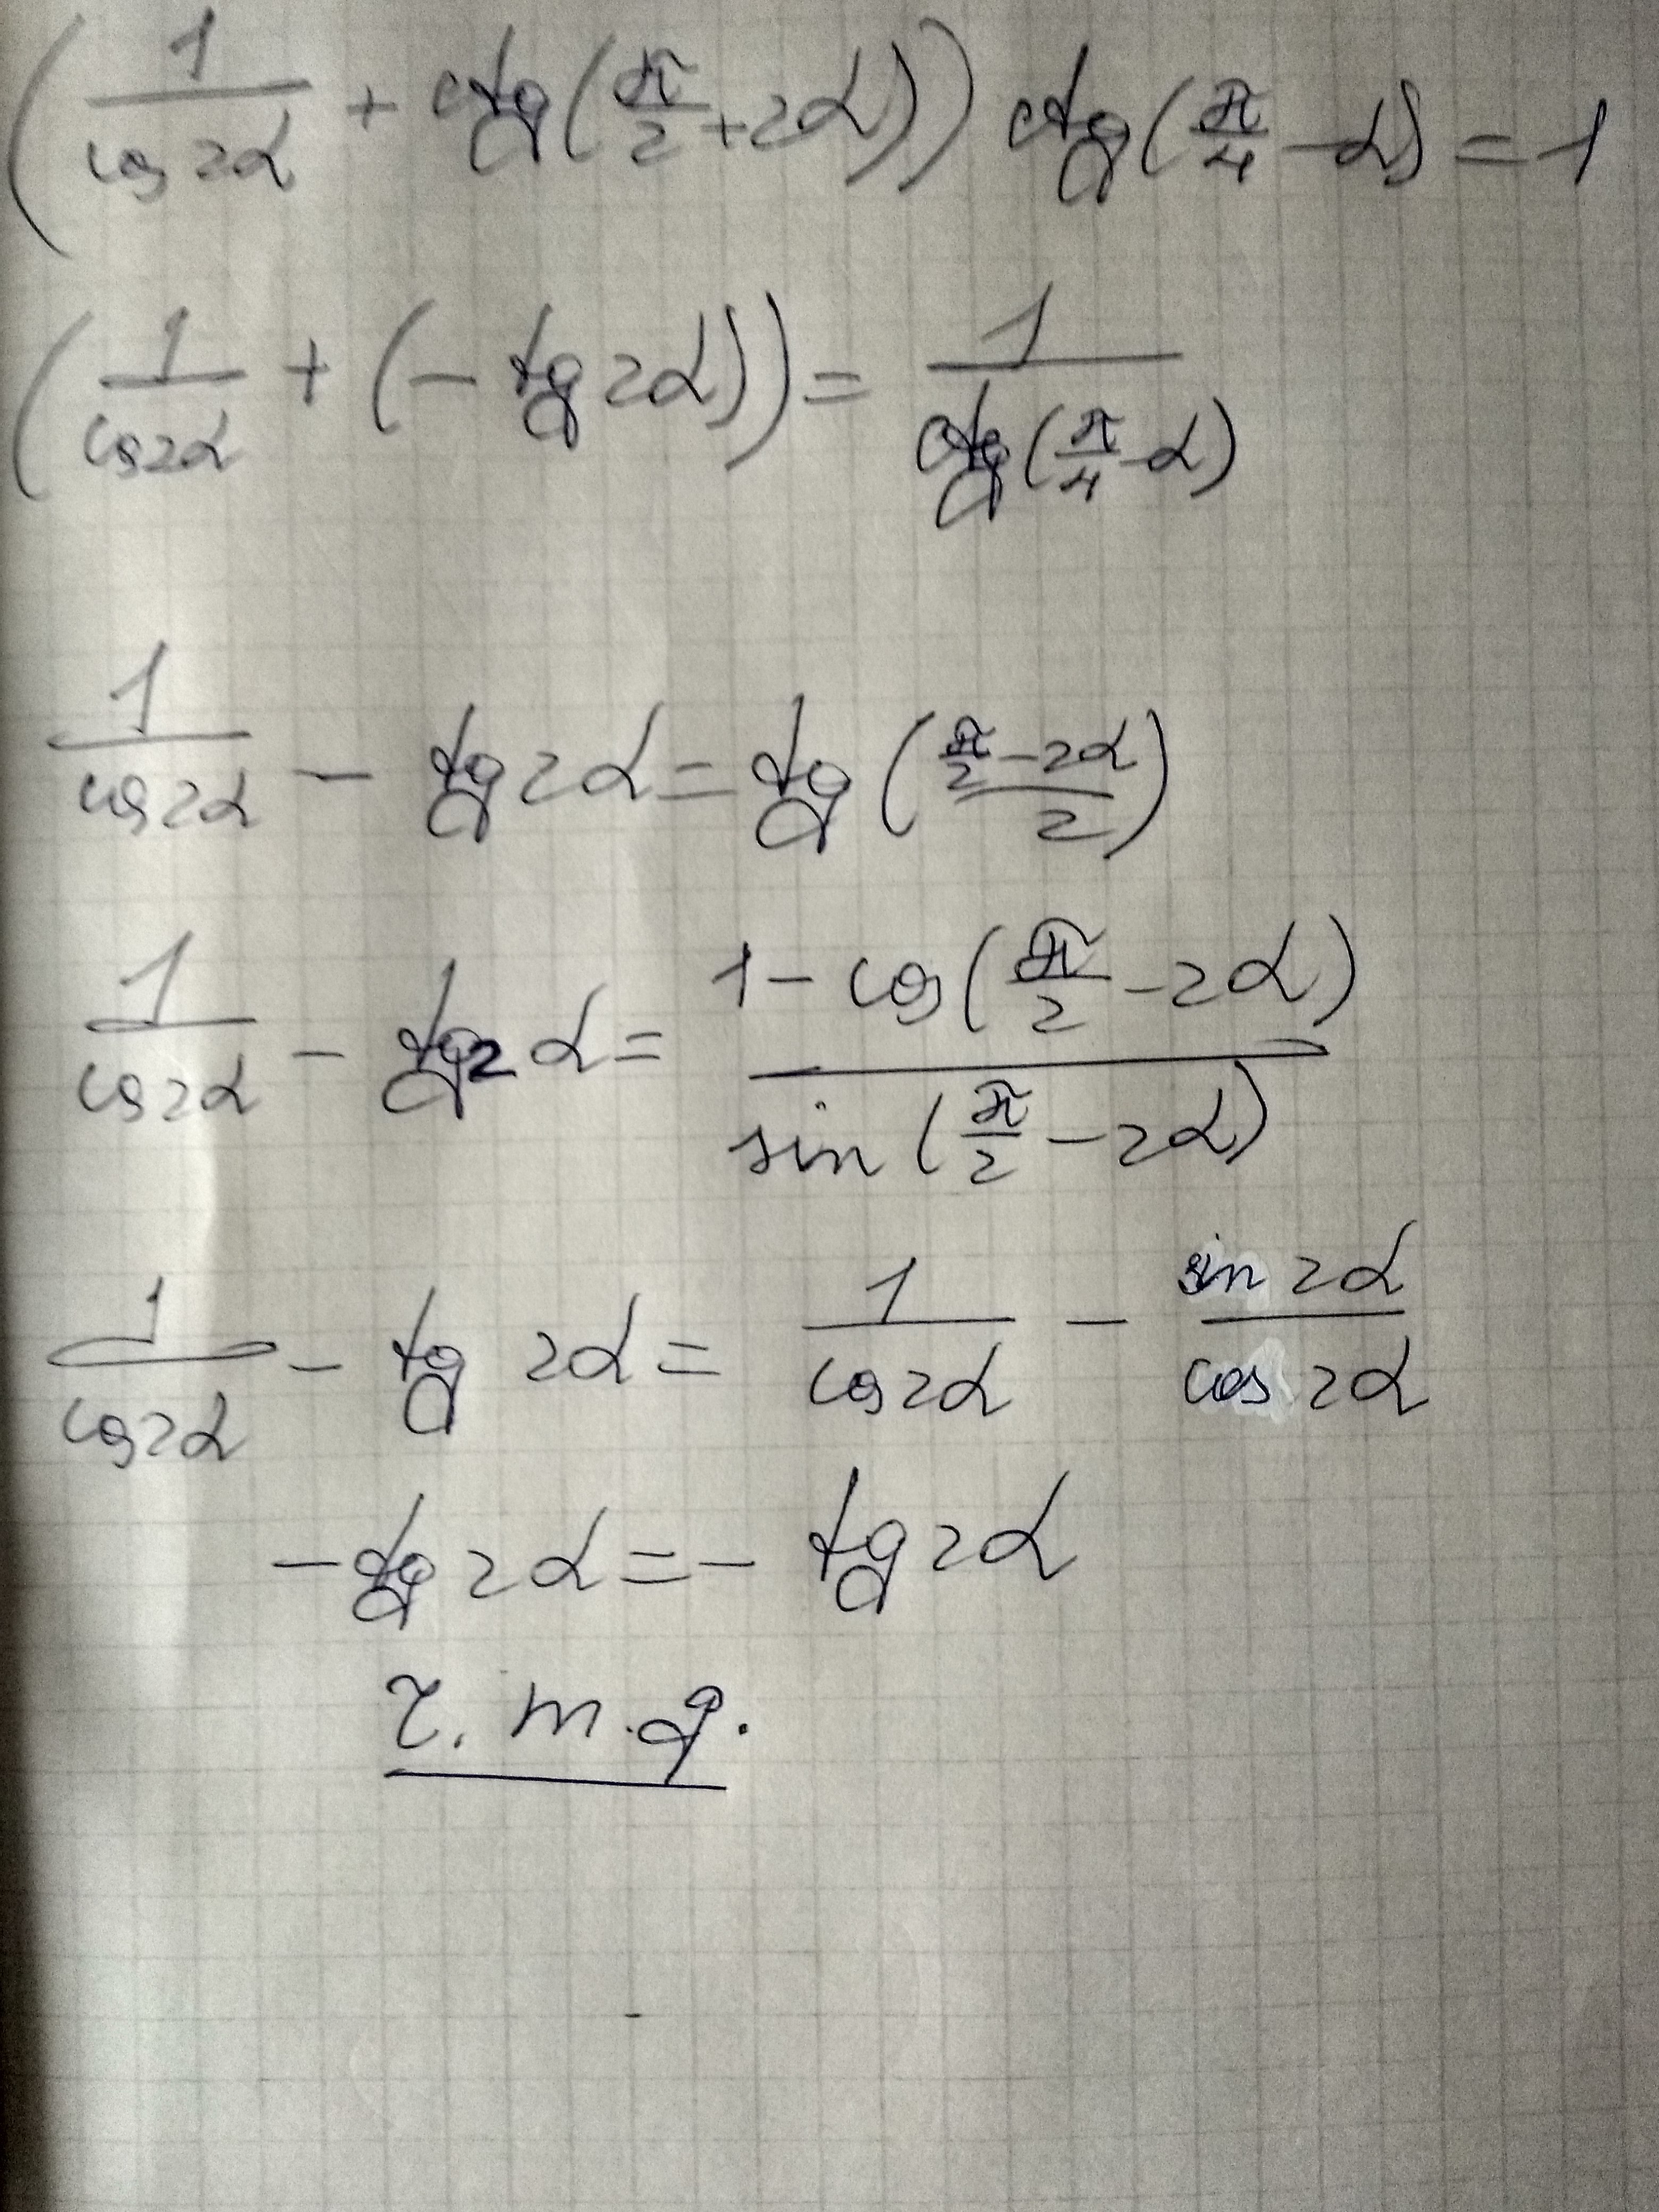 (1/cos 2α + ctg(π/2 + 2α)) ctg(π/4 - α) = 1
(1/cos 2α + (- tg 2α)) = 1/ctg(π/4 - α)
1/cos 2α - tg 2α = tg((π/2 - 2α)/2)
1/cos 2α - tg 2α = (1 - cos(π/2 - 2α))/sin(π/2 - 2α)
1/cos 2α - tg 2α = 1/cos 2α - sin 2α/cos 2α
- tg 2α = - tg 2α
ч. т. д.